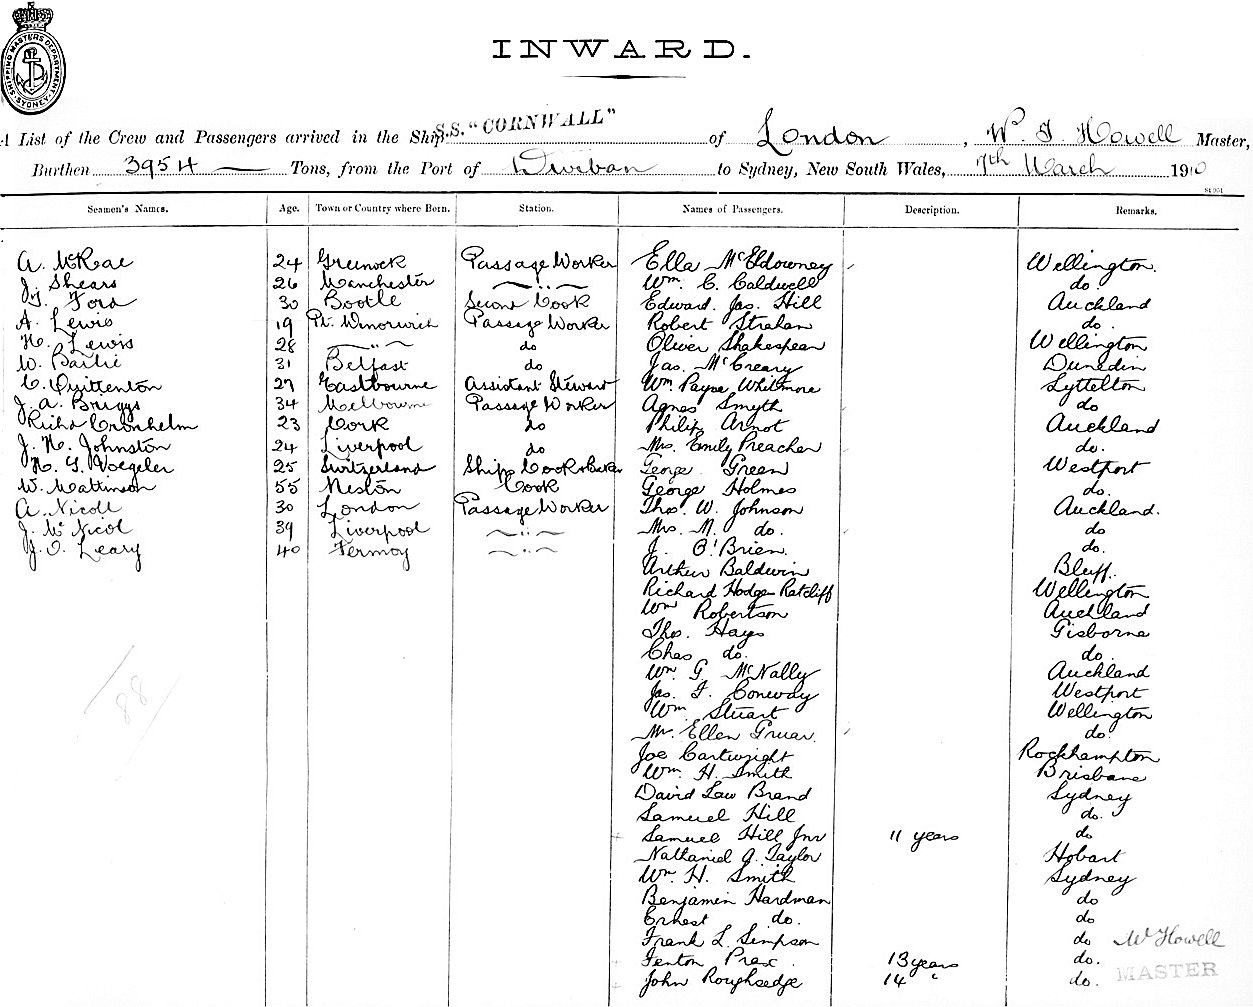 SHIPPING MASTERS DEPARTMENT SYDNEY
INWARD.
A List of the Crew and Passengers arrived in the Ship S.S. "CORNWALL" of London, W. J. Howell Master,
Burthen 3954 Tons, from the Port of Durban to Sydney, New South Wales, 7th March 1910
Seamen's Names. Age. Town or Country where Born. Station. Names of Passengers. Description. Remarks.
A. McRae 24 Greenock Passage Worker Ella McEldowney Wellington.
J. Shears 26 Manchester " Wm. C. Caldwell do
Ford 30 Bootle Second Cook Edward Jas. Hill Auckland
A. Lewis 19 Pt. Passage Worker Robert Strahan do.
H. Lewis 28 " do Oliver Shakespear Wellington
W. Bailie 31 Belfast do Jas. McCreary Dunedin
C. Quittenton 27 Eastbourne Assistant Steward Wm. Payne Whitmore Lyttelton
J. A. Briggs 34 Melbourne Passage Worker Agnes Smyth do
Richd Cronhelm 23 Cork do Philip Arnot Auckland
J. H. Johnston 24 Liverpool do Mrs. Emily Preacher do.
H. G. Voegeler 25 Switzerland Ships Cook & Baker George Green Westport
W. Mattinson 55 Neston Cook George Holmes do.
A. Nicoll 30 London Passage Worker Thos. W. Johnson Auckland.
J. McNicol 39 Liverpool " Mrs. M. do. do
J. O. Leary 40 Fermoy " J. O'Brien. do.
Arthur Baldwin Bluff.
Richard Hodge Ratcliff Wellington
Wm Robertson Auckland
Thos. Hays Gisborne
Chas do. do.
Wm. G McNally Auckland
Jas. F. Conway Westport
Wm. Stuart Wellington
Ellen Gruar. do.
Joe Cartwright Rockhampton
Wm. H. Smith Brisbane
David Law Brand Sydney
Samuel Hill do.
Samuel Hill Jnr 11 years do
Nathaniel A. Taylor Hobart
Wm. H. Smith Sydney
Benjamin Hardman do
Ernest do. do
Frank L. Simpson do
Fenton 13 years do.
John Roughsedge 14 " do.
88
W Howell
MASTER